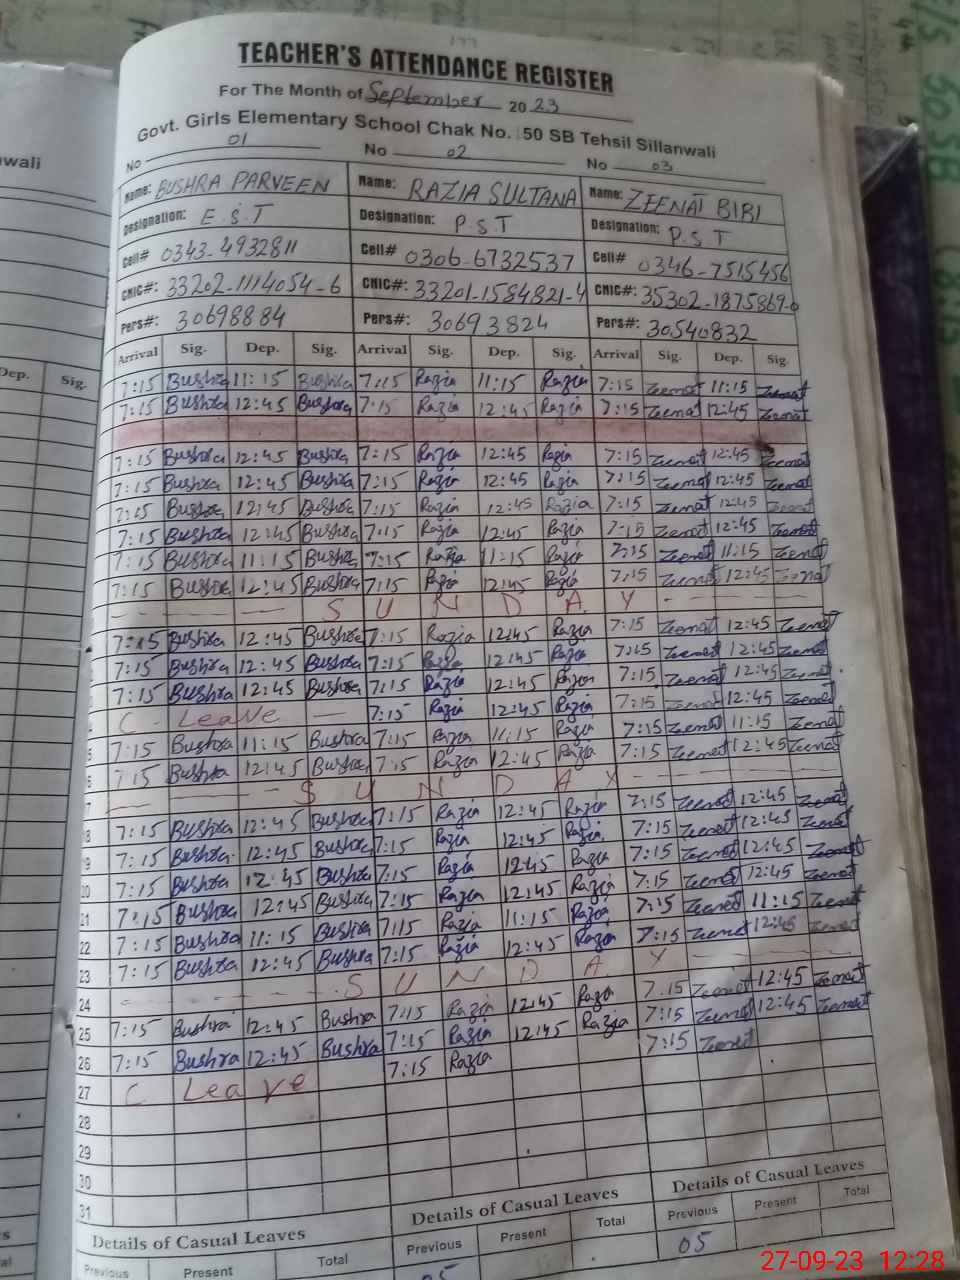 TEACHER'S ATTENDANCE REGISTER
For The Month of September 2023
Govt. Girls Elementary School Chak No. 150 SB Tehsil Sillanwali
No 01 No 02 No 03
Name: BUSHRA PARVEEN Name: RAZIA SULTANA Name: ZEENAT BIBI
Designation: E.S.T Designation: P.S.T Designation: P.S.T
Cell# 0343-4932811 Cell# 0306-6732537 Cell# 0346-7515456
CNIC#: 33202-1114054-6 CNIC#: 33201-1584821-4 CNIC#: 35302-1875869-0
Pers#: 30698884 Pers#: 30693824 Pers#: 30540832
Arrival Sig. Dep. Sig. Arrival Sig. Dep. Sig. Arrival Sig. Dep. Sig.
7:15 Bushra 11:15 Bushra 7:15 Razia 11:15 Razia 7:15 Zeenat 11:15 Zeenat
7:15 Bushra 12:45 Bushra 7:15 Razia 12:45 Razia 7:15 Zeenat 12:45 Zeenat
7:15 Bushra 12:45 Bushra 7:15 Razia 12:45 Razia 7:15 Zeenat 12:45 Zeenat
7:15 Bushra 12:45 Bushra 7:15 Razia 12:45 Razia 7:15 Zeenat 12:45 Zeenat
7:15 Bushra 12:45 Bushra 7:15 Razia 12:45 Razia 7:15 Zeenat 12:45 Zeenat
7:15 Bushra 12:45 Bushra 7:15 Razia 12:45 Razia 7:15 Zeenat 12:45 Zeenat
7:15 Bushra 11:15 Bushra 7:15 Razia 11:15 Razia 7:15 Zeenat 11:15 Zeenat
7:15 Bushra 12:45 Bushra 7:15 Razia 12:45 Razia 7:15 Zeenat 12:45 Zeenat
S U N D A Y
7:15 Bushra 12:45 Bushra 7:15 Razia 12:45 Razia 7:15 Zeenat 12:45 Zeenat
7:15 Bushra 12:45 Bushra 7:15 Razia 12:45 Razia 7:15 Zeenat 12:45 Zeenat
7:15 Bushra 12:45 Bushra 7:15 Razia 12:45 Razia 7:15 Zeenat 12:45 Zeenat
C - Leave 7:15 Razia 12:45 Razia 7:15 Zeenat 12:45 Zeenat
7:15 Bushra 11:15 Bushra 7:15 Razia 11:15 Razia 7:15 Zeenat 11:15 Zeenat
7:15 Bushra 12:45 Bushra 7:15 Razia 12:45 Razia 7:15 Zeenat 12:45 Zeenat
S U N D A Y
18 7:15 Bushra 12:45 Bushra 7:15 Razia 12:45 Razia 7:15 Zeenat 12:45 Zeenat
19 7:15 Bushra 12:45 Bushra 7:15 Razia 12:45 Razia 7:15 Zeenat 12:45 Zeenat
20 7:15 Bushra 12:45 Bushra 7:15 Razia 12:45 Razia 7:15 Zeenat 12:45 Zeenat
21 7:15 Bushra 12:45 Bushra 7:15 Razia 12:45 Razia 7:15 Zeenat 12:45 Zeenat
22 7:15 Bushra 11:15 Bushra 7:15 Razia 11:15 Razia 7:15 Zeenat 11:15 Zeenat
23 7:15 Bushra 12:45 Bushra 7:15 Razia 12:45 Razia 7:15 Zeenat 12:45 Zeenat
24 S U N D A Y
25 7:15 Bushra 12:45 Bushra 7:15 Razia 12:45 Razia 7:15 Zeenat 12:45 Zeenat
26 7:15 Bushra 12:45 Bushra 7:15 Razia 12:45 Razia 7:15 Zeenat 12:45 Zeenat
27 C Leave 7:15 Razia 7:15 Zeenat
28
29
30
31
Details of Casual Leaves Details of Casual Leaves Details of Casual Leaves
Previous Present Total Previous Present Total Previous Present Total
05 05
Dep. Sig.
27-09-23 12:28